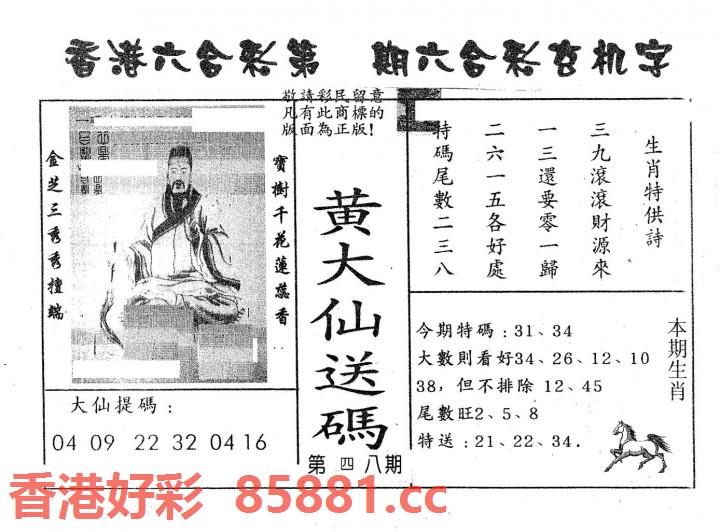 香港六合彩第 期六合彩玄机字
敬請彩民留意
凡有此商標的
版面為正版!
金芝三秀秀擅端
寶樹千花蓮蕊香
黃大仙送碼
第四八期
生肖特供詩
三九滾滾財源來
一三還要零一歸
二六一五各好處
特碼尾數二三八
大仙提碼:
04 09 22 32 04 16
今期特碼:31、34
大數則看好34、26、12、10
38,但不排除 12、45
尾數旺2、5、8
特送:21、22、34.
本期生肖
香港好彩 85881.cc